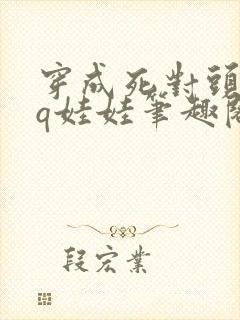 穿成死對頭
q娃娃筆趣閣
段宏業